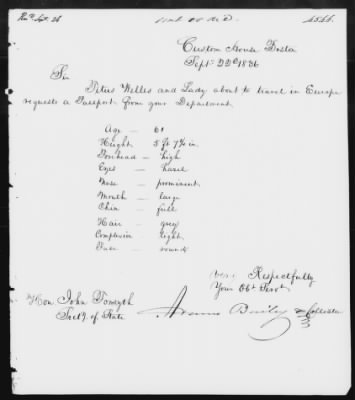 Custom House Boston
Sept. 22d 1836
Sir
Welles and Lady about to travel in Europe
requests a Passport from your Department
Age — 61
Height 5 ft 7¾ in
Forehead — high
Eyes — hazel
Nose — prominent
Mouth — large
Chin — full
Hair — grey
Complexion light
Face — round
Respectfully
Your Obt Servt
Hon John Forsyth
Secty. of State
Bailey